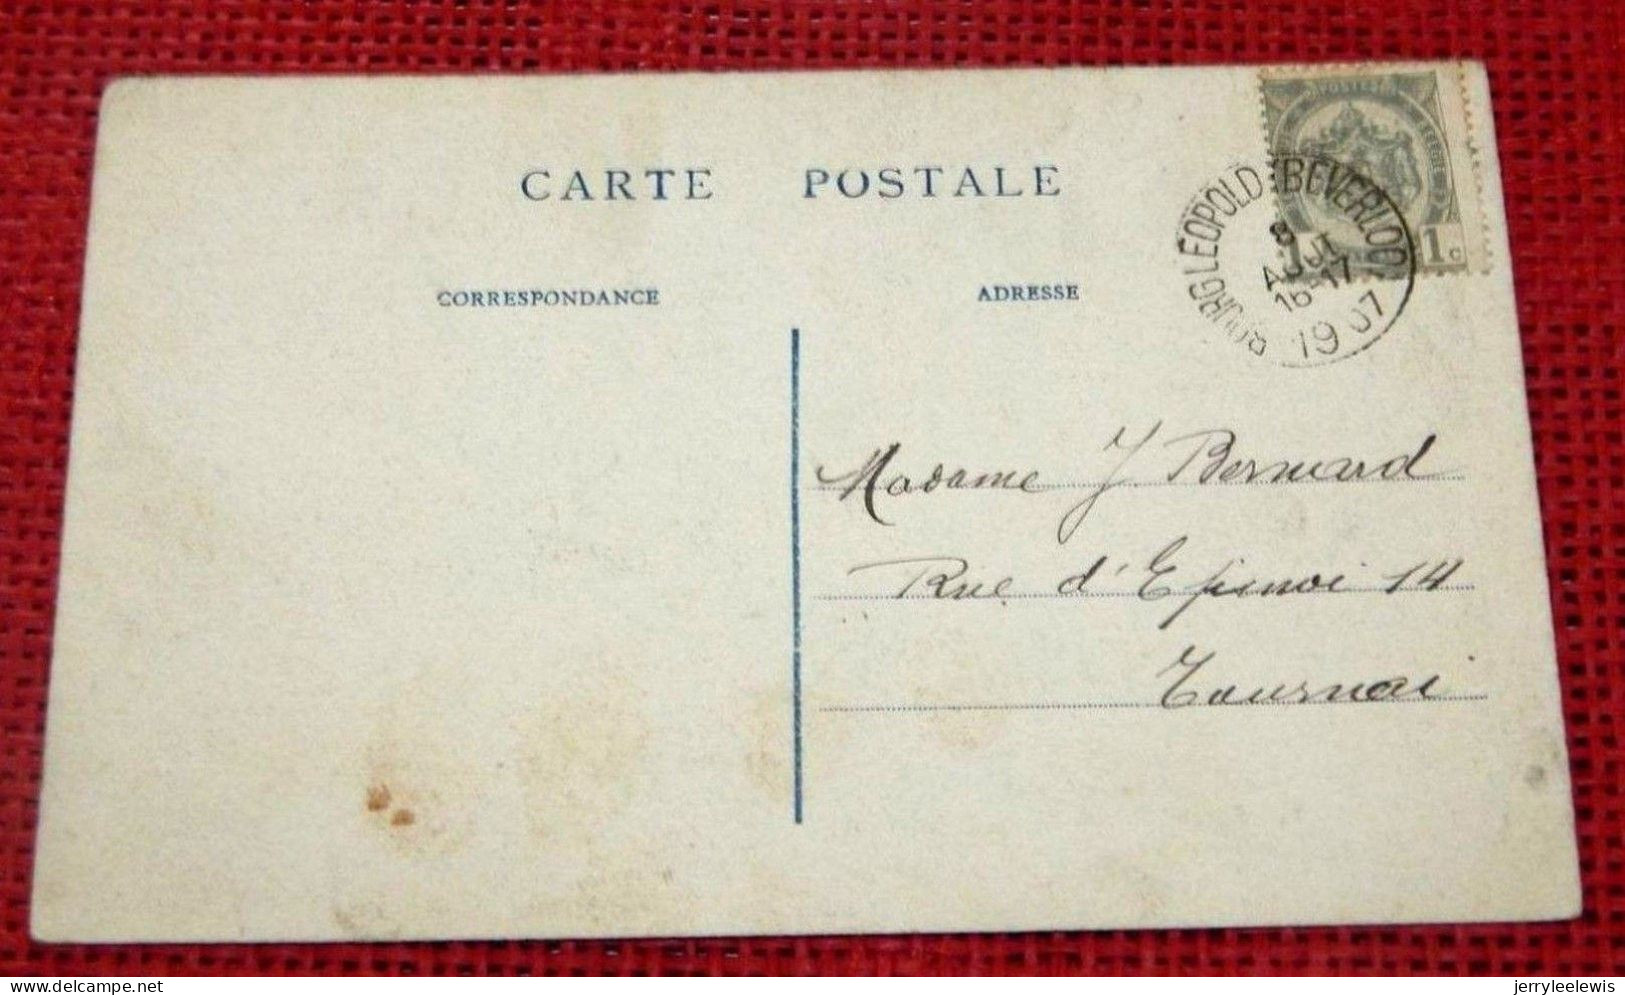 CARTE POSTALE
CORRESPONDANCE
ADRESSE
POSTES
BELGIQUE
1c
BOURG LÉOPOLD (BEVERLOO)
8
AOUT
16-17
1907
Madame J. Bernard
Rue d'Epinoi 14
Tournai
delcampe.net
jerryleelewis